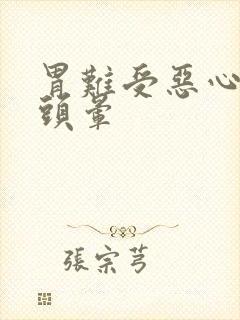 胃難受惡心
頭暈
張宗芎